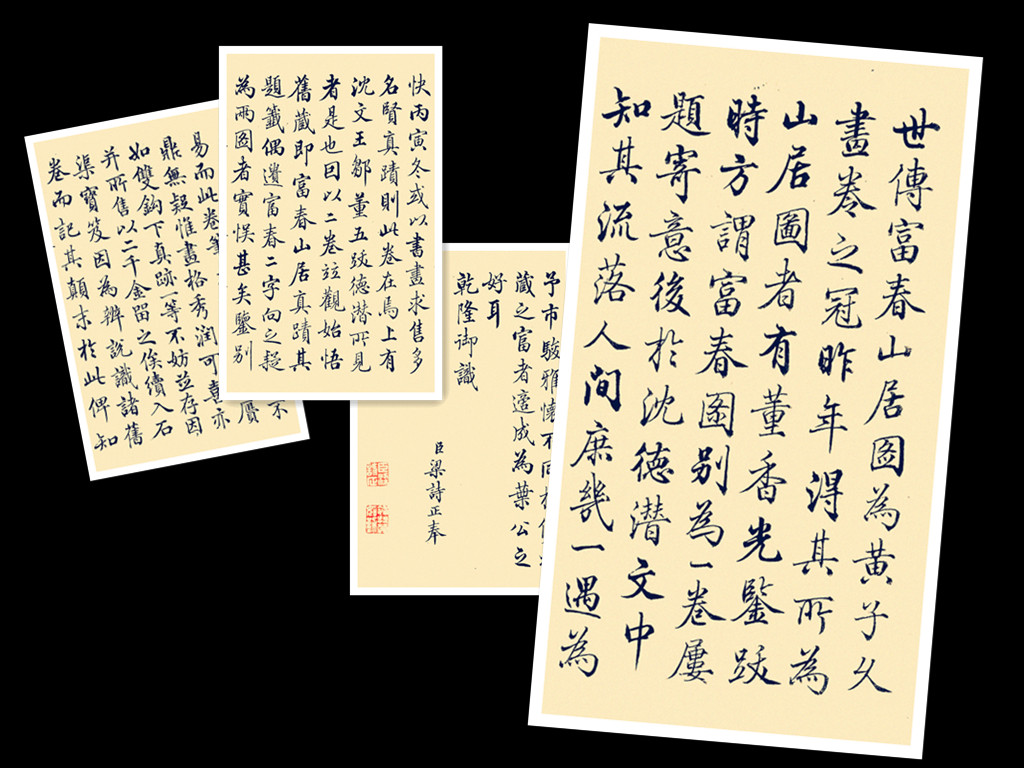 世傳富春山居圖為黃子久
畫卷之冠昨年得其所為
山居圖者有董香光鑒跋
時方謂富春圖别為一卷屢
題寄意後於沈德潛文中
知其流落人間庶幾一遇為
快丙寅冬或以書畫求售多
名賢真蹟則此卷在焉上有
沈文王鄒董五跋德潛所見
者是也因以二卷竝觀始悟
舊藏即富春山居真蹟其
題籤偶遺富春二字向之疑
為兩圖者實悞甚矣鑒别
不
贋
易而此卷筆
鼎無疑惟畫格秀潤可喜亦
如雙鉤下真跡一等不妨並存因
并所售以二千金留之俟續入石
渠寶笈因為辨說識諸舊
卷而記其顛末於此俾知
予市駿雅懷不同
藏之富者適成為葉公之
好耳
乾隆御識
臣梁詩正奉